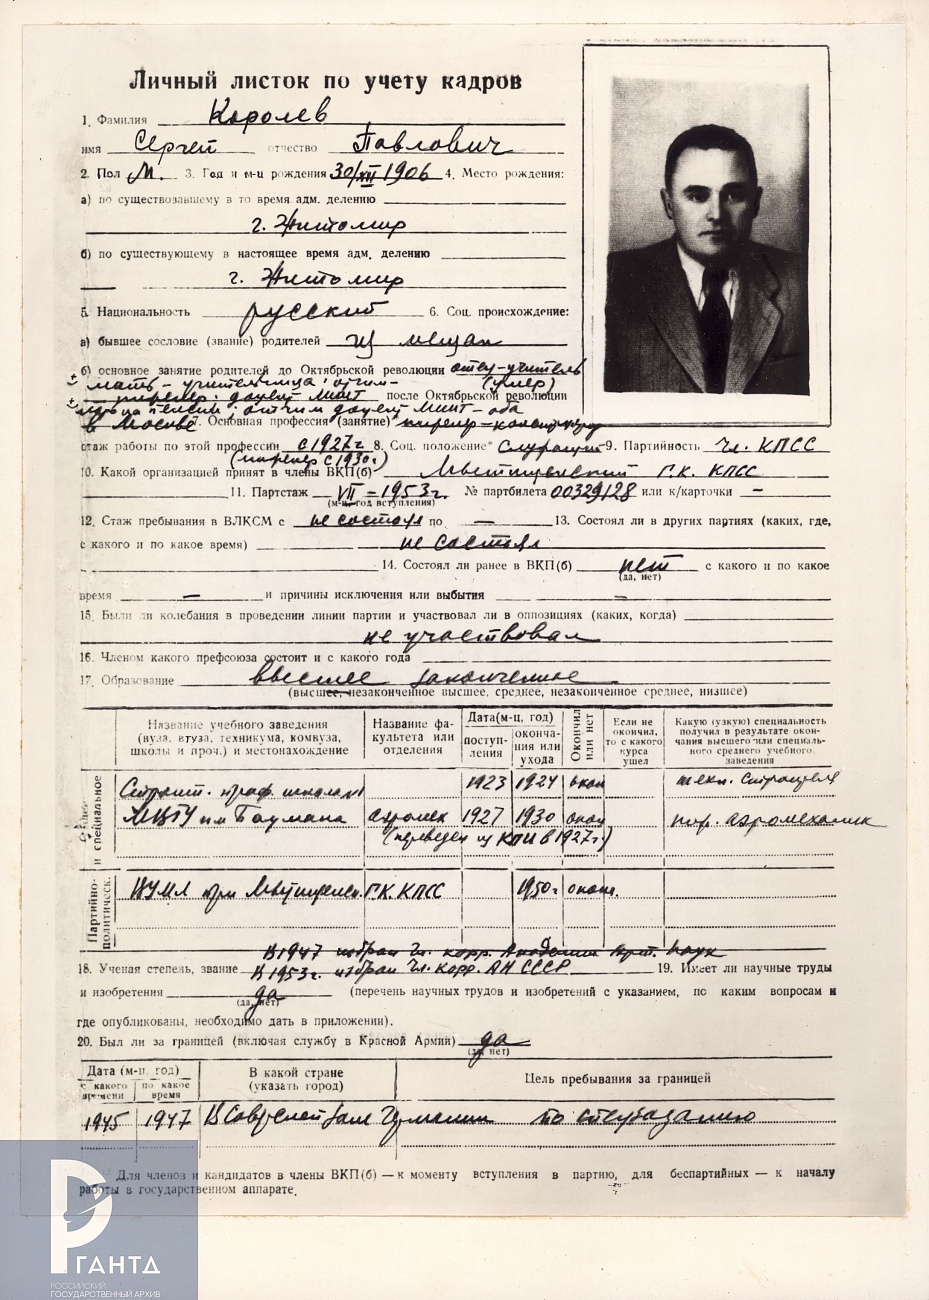 Личный листок по учету кадров
1. Фамилия Королев
имя Сергей отчество Павлович
2. Пол М. 3. Год и м-ц рождения 30/XII 1906 4. Место рождения:
а) по существовавшему в то время адм. делению
г. Житомир
б) по существующему в настоящее время адм. делению
г. Житомир
5. Национальность русский 6. Соц. происхождение:
а) бывшее сословие (звание) родителей из мещан
б) основное занятие родителей до Октябрьской революции отец-учитель
мать - учительница; отчим- (умер)
после Октябрьской революции
отчим доцент МИИТ - оба
в Москве 7. Основная профессия (занятие) инженер-конструктор
стаж работы по этой профессии с 1927 г. 8. Соц. положение* Служащий 9. Партийность Чл. КПСС
(инженер с 1930г.)
10. Какой организацией принят в члены ВКП(б) Мытищинский Г.К. КПСС
11. Партстаж VII - 1953 г. № партбилета 00329128 или к/карточки —
(м-ц, год вступления)
12. Стаж пребывания в ВЛКСМ с не состоял по — 13. Состоял ли в других партиях (каких, где,
с какого и по какое время) не состоял
14. Состоял ли ранее в ВКП(б) нет с какого и по какое
(да, нет)
время — и причины исключения или выбытия —
15. Были ли колебания в проведении линии партии и участвовал ли в оппозициях (каких, когда)
не участвовал
16. Членом какого префсоюза состоит и с какого года
17. Образование высшее законченное
(высшее, незаконченное высшее, среднее, незаконченное среднее, низшее)
Название учебного заведения (вуза, втуза, техникума, комвуза, школы и проч.) и местонахождение
Название факультета или отделения
Дата (м-ц, год)
поступления
окончания или ухода
Окончил или нет
Если не окончил, то с какого курса ушел
Какую (узкую) специальность получил в результате окончания высшего или специального среднего учебного заведения
и специальное
Строит. проф. школа 1923 1924 окон
МВТУ им Баумана аэромех 1927 1930 окон инж. аэромеханик
(переведен из КПИ в 1927 г.)
Партийно-политическ.
ВУМЛ при Мытищенск. Г.К. КПСС 1950 г оконч.
В 1947 избран Чл. корр. Академии Арт. Наук
18. Ученая степень, звание В 1953 г. избран Чл. Корр. АН СССР 19. Имеет ли научные труды
и изобретения да (перечень научных трудов и изобретений с указанием, по каким вопросам и
(да, нет)
где опубликованы, необходимо дать в приложении).
20. Был ли за границей (включая службу в Красной Армии) да
(да, нет)
Дата (м-ц, год)
с какого времени
по какое время
В какой стране (указать город)
Цель пребывания за границей
1945 1947 В Советской зоне Германии по спецзаданию
* Для членов и кандидатов в члены ВКП(б) — к моменту вступления в партию, для беспартийных — к началу
работы в государственном аппарате.
РГАНТД
РОССИЙСКИЙ
ГОСУДАРСТВЕННЫЙ АРХИВ